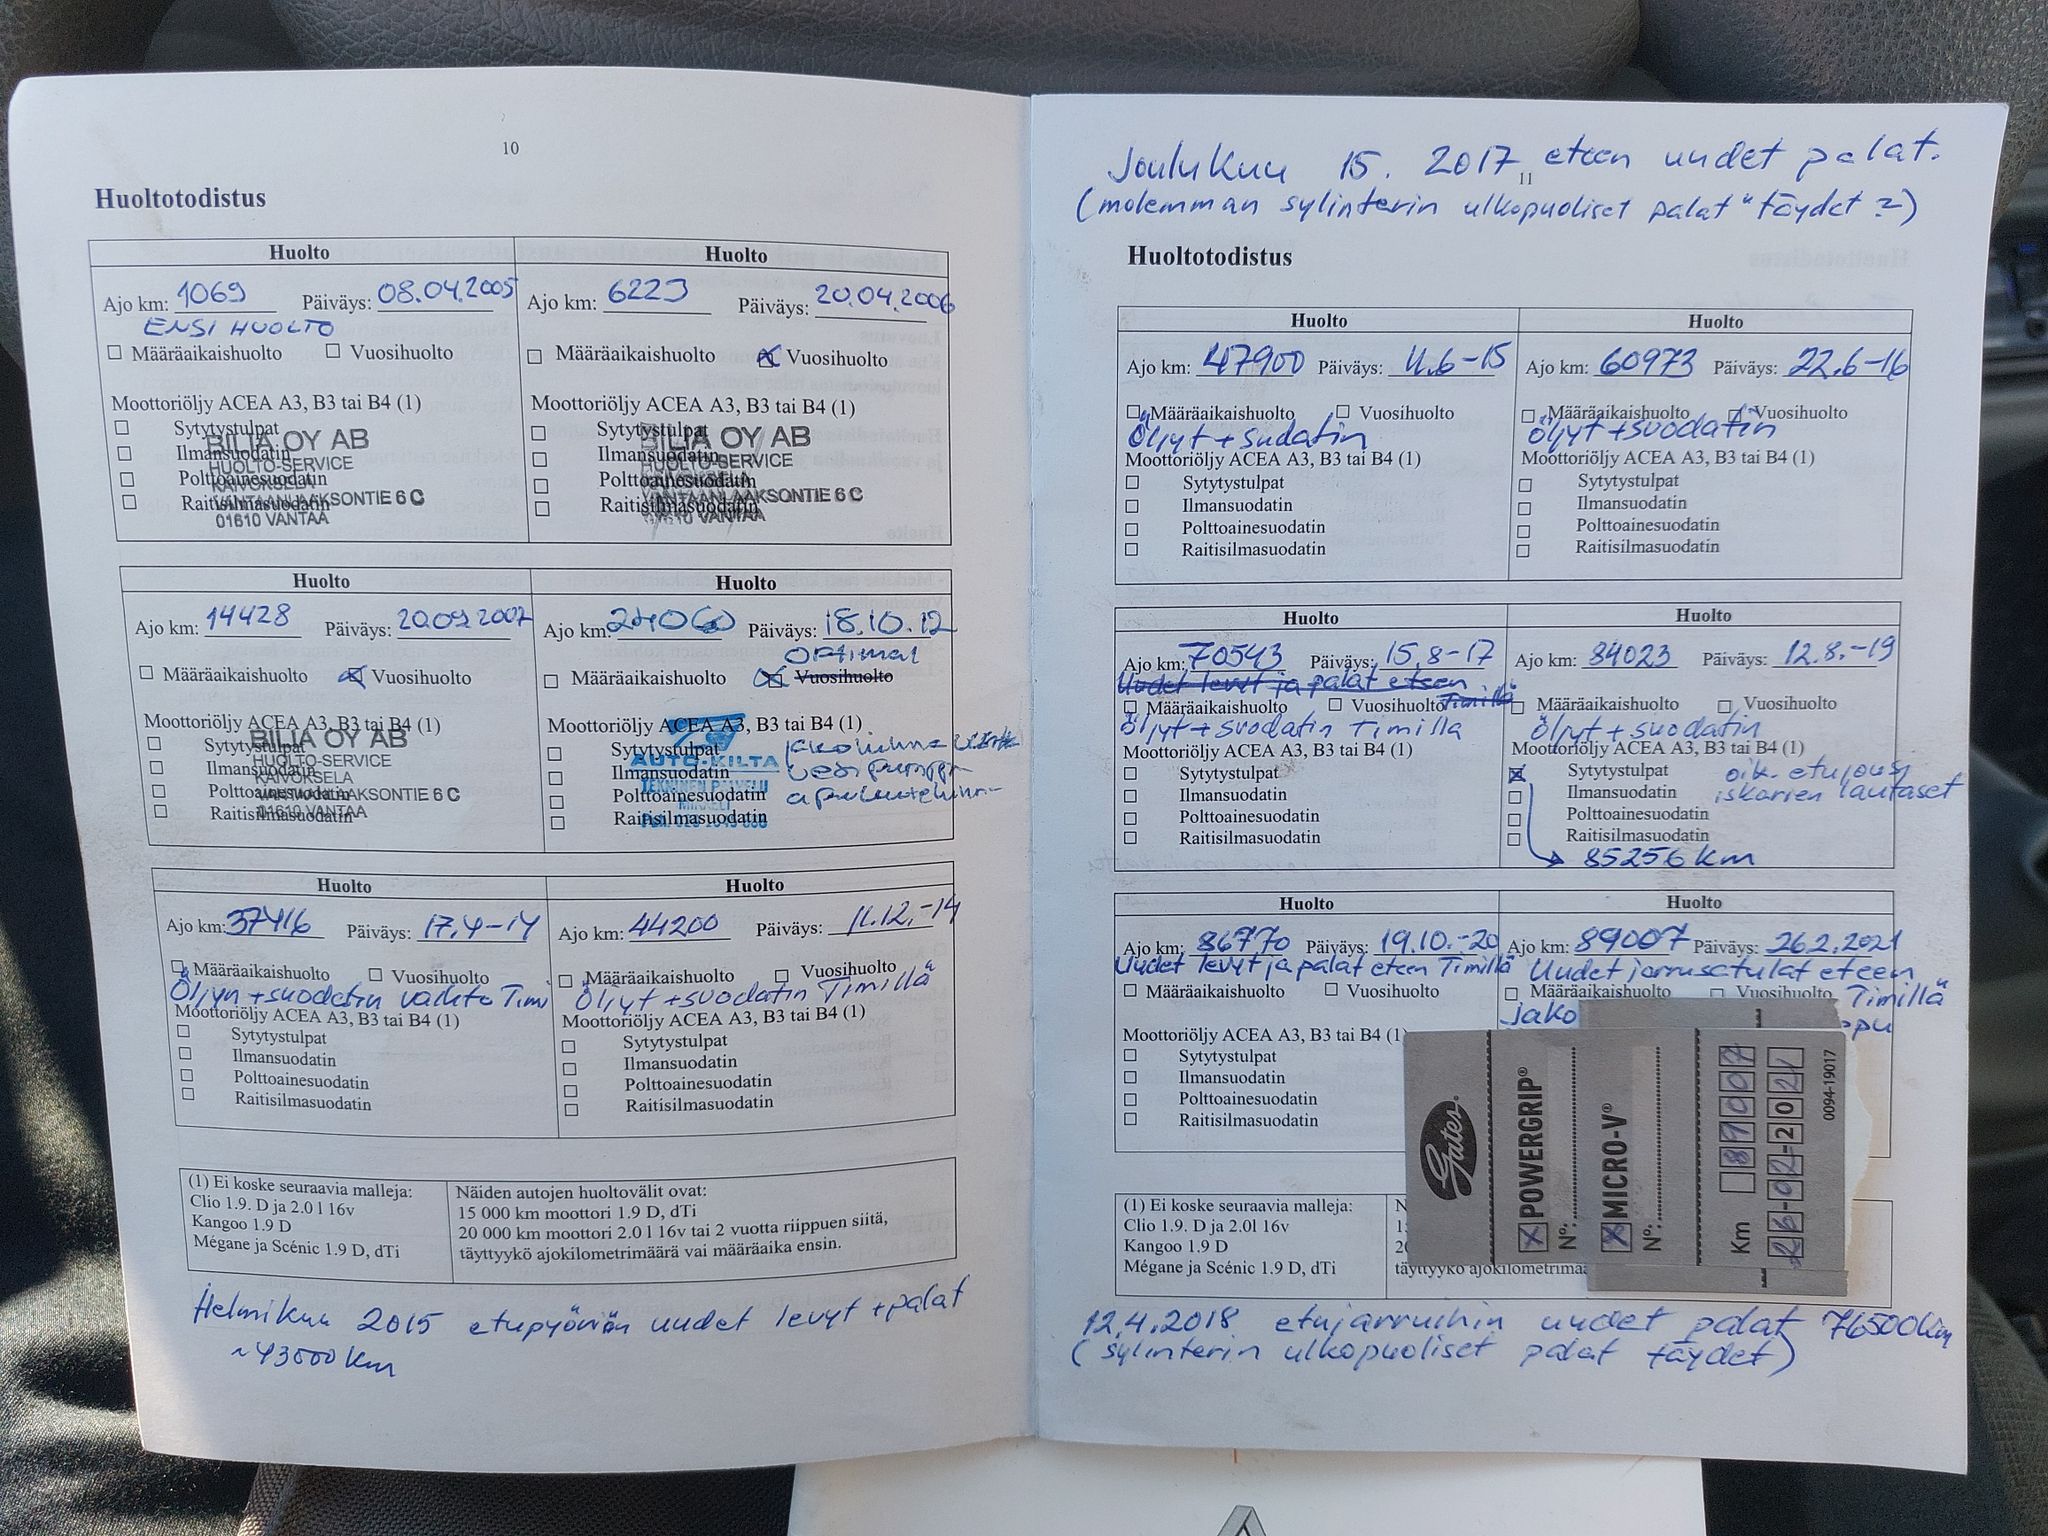 10
Huoltotodistus
Huolto
Ajo km: 1069 Päiväys: 08.04.2005
ENSI HUOLTO
Määräaikaishuolto Vuosihuolto
Moottoriöljy ACEA A3, B3 tai B4 (1)
Sytytystulpat
Ilmansuodatin
Polttoainesuodatin
Raitisilmasuodatin
BILIA OY AB
HUOLTO-SERVICE
KAIVOKSELA
VANTAANLAAKSONTIE 6 C
01610 VANTAA
Huolto
Ajo km: 6223 Päiväys: 20.04.2006
Määräaikaishuolto Vuosihuolto
Moottoriöljy ACEA A3, B3 tai B4 (1)
Sytytystulpat
Ilmansuodatin
Polttoainesuodatin
Raitisilmasuodatin
BILIA OY AB
HUOLTO-SERVICE
KAIVOKSELA
VANTAANLAAKSONTIE 6 C
01610 VANTAA
Huolto
Ajo km: 14428 Päiväys: 20.09.2007
Määräaikaishuolto Vuosihuolto
Moottoriöljy ACEA A3, B3 tai B4 (1)
Sytytystulpat
Ilmansuodatin
Polttoainesuodatin
Raitisilmasuodatin
BILIA OY AB
HUOLTO-SERVICE
KAIVOKSELA
VANTAANLAAKSONTIE 6 C
01610 VANTAA
Huolto
Ajo km: 24060 Päiväys: 18.10.12
OPTIMAL
Määräaikaishuolto Vuosihuolto
Moottoriöljy ACEA A3, B3 tai B4 (1)
Sytytystulpat jakohihna
Ilmansuodatin vesipumppu
Polttoainesuodatin
Raitisilmasuodatin
AUTO-KILTA
TEKNINEN PALVELU
MIKKELI
Huolto
Ajo km: 37416 Päiväys: 17.4-14
Määräaikaishuolto Vuosihuolto
Öljyn + suodatin vaihto Timi
Moottoriöljy ACEA A3, B3 tai B4 (1)
Sytytystulpat
Ilmansuodatin
Polttoainesuodatin
Raitisilmasuodatin
Huolto
Ajo km: 44200 Päiväys: 11.12.-14
Määräaikaishuolto Vuosihuolto
Öljyt + suodatin Timillä
Moottoriöljy ACEA A3, B3 tai B4 (1)
Sytytystulpat
Ilmansuodatin
Polttoainesuodatin
Raitisilmasuodatin
(1) Ei koske seuraavia malleja:
Clio 1.9. D ja 2.0 l 16v
Kangoo 1.9 D
Mégane ja Scénic 1.9 D, dTi
Näiden autojen huoltovälit ovat:
15 000 km moottori 1.9 D, dTi
20 000 km moottori 2.0 l 16v tai 2 vuotta riippuen siitä,
täyttyykö ajokilometrimäärä vai määräaika ensin.
Helmikuu 2015 etupyöriin uudet levyt + palat
~43000 km
Joulukuu 15. 2017 eteen uudet palat.
11
(molemman sylinterin ulkopuoliset palat "täydet"?)
Huoltotodistus
Huolto
Ajo km: 47900 Päiväys: 11.6-15
Määräaikaishuolto Vuosihuolto
Öljyt + sudatin
Moottoriöljy ACEA A3, B3 tai B4 (1)
Sytytystulpat
Ilmansuodatin
Polttoainesuodatin
Raitisilmasuodatin
Huolto
Ajo km: 60973 Päiväys: 22.6-16
Määräaikaishuolto Vuosihuolto
Öljyt + suodatin
Moottoriöljy ACEA A3, B3 tai B4 (1)
Sytytystulpat
Ilmansuodatin
Polttoainesuodatin
Raitisilmasuodatin
Huolto
Ajo km: 70543 Päiväys: 15.8-17
Uudet levyt ja palat eteen Timillä
Määräaikaishuolto Vuosihuolto
Öljyt + suodatin Timilla
Moottoriöljy ACEA A3, B3 tai B4 (1)
Sytytystulpat
Ilmansuodatin
Polttoainesuodatin
Raitisilmasuodatin
Huolto
Ajo km: 84023 Päiväys: 12.8.-19
Määräaikaishuolto Vuosihuolto
Öljyt + suodatin
Moottoriöljy ACEA A3, B3 tai B4 (1)
Sytytystulpat oik. etujousi
Ilmansuodatin iskarien lautaset
Polttoainesuodatin
Raitisilmasuodatin
85256 km
Huolto
Ajo km: 86770 Päiväys: 19.10.-20
Uudet levyt ja palat eteen Timillä
Määräaikaishuolto Vuosihuolto
Moottoriöljy ACEA A3, B3 tai B4 (1)
Sytytystulpat
Ilmansuodatin
Polttoainesuodatin
Raitisilmasuodatin
Huolto
Ajo km: 89007 Päiväys: 26.2.2021
Uudet jarrusatulat eteen
Määräaikaishuolto Vuosihuolto Timillä
jako ppu
Gates®
X POWERGRIP®
N°:
X MICRO-V®
N°:
Km 89007
26-02-2021
0094-19017
(1) Ei koske seuraavia malleja:
Clio 1.9. D ja 2.0l 16v
Kangoo 1.9 D
Mégane ja Scénic 1.9 D, dTi
täyttyykö ajokilometrimää
12.4.2018 etujarruihin uudet palat 76500km
(sylinterin ulkopuoliset palat täydet)